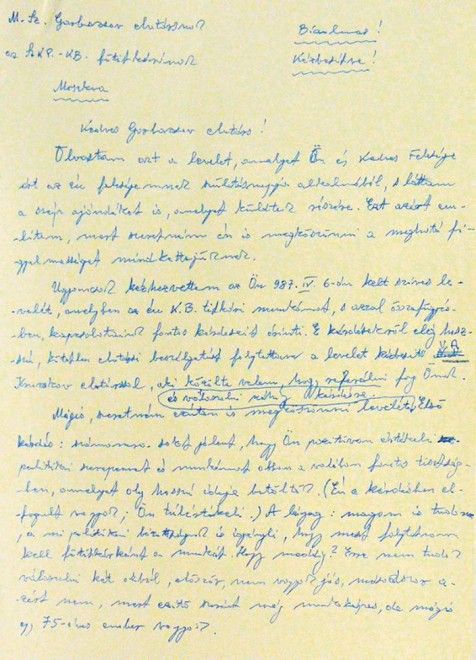 M. Sz. Gorbacsov elvtársnak Bizalmas!
az SzKP.-KB. főtitkárának Kézbesítve!
Moszkva
Kedves Gorbacsov elvtárs!
Olvastam azt a levelet, amelyet Ön és Kedves Felesége
írt az én feleségemnek születésnapja alkalmából, s láttam
a szép ajándékot is, amelyet küldtek részére. Ezt azért em-
lítem, mert szeretném én is megköszönni a megható fi-
gyelmességet mindkettőjüknek.
Ugyancsak kézhezvettem az Ön 987. IV. 6-án kelt szíves le-
velét, amelyben az én K.B. titkári munkámat, s azzal összefüggés-
ben, kapcsolataink fontos kérdéseit érinti. E kérdésekről elég hosz-
szú, kötetlen elvtársi beszélgetést folytattam a levelet kézbesítő V.A.
elvtárssal, aki közölte velem, hogy referálni fog Önnek
és válaszolni néhány kérdésre.
Mégis, szeretném ezúton is megköszönni levelét. Első
kérdés: számomra sokat jelent, hogy Ön pozitívan értékeli
politikai szerepemet és munkámat abban a valóban fontos tisztség-
ben, amelyet oly hosszú ideje betöltök. (Én a kérdésben el-
fogult vagyok, Ön túlértékeli.) A lényeg: magam is tudom,
a mi politikai bizottságunk is igényli, hogy most folytatnom
kell főtitkárként a munkát. Hogy meddig? Erre nem tudok
válaszolni két okból, először, nem vagyok jós, másodszor a-
zért nem, mert szerint még munkaképes, de mégis
egy 75-éves ember vagyok.